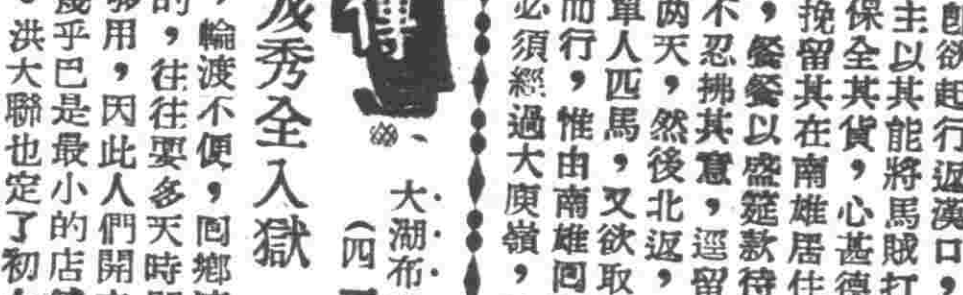 欲起行返漢口，
主以其能將馬賊打
保全其貨，心甚德
挽留其在南雄居住
，餐餐以盛筵款待
不忍拂其意，逕留
两天，然後北返，
單人匹馬，又欲取
而行，惟由南雄囘
必須經過大庾嶺，
傳
大湖布
（四
秀全入獄
，輪渡不便，囘鄉
的，往往要多天時
用，因此人們開
幾乎巴是最小的店
。洪大聯也定了初